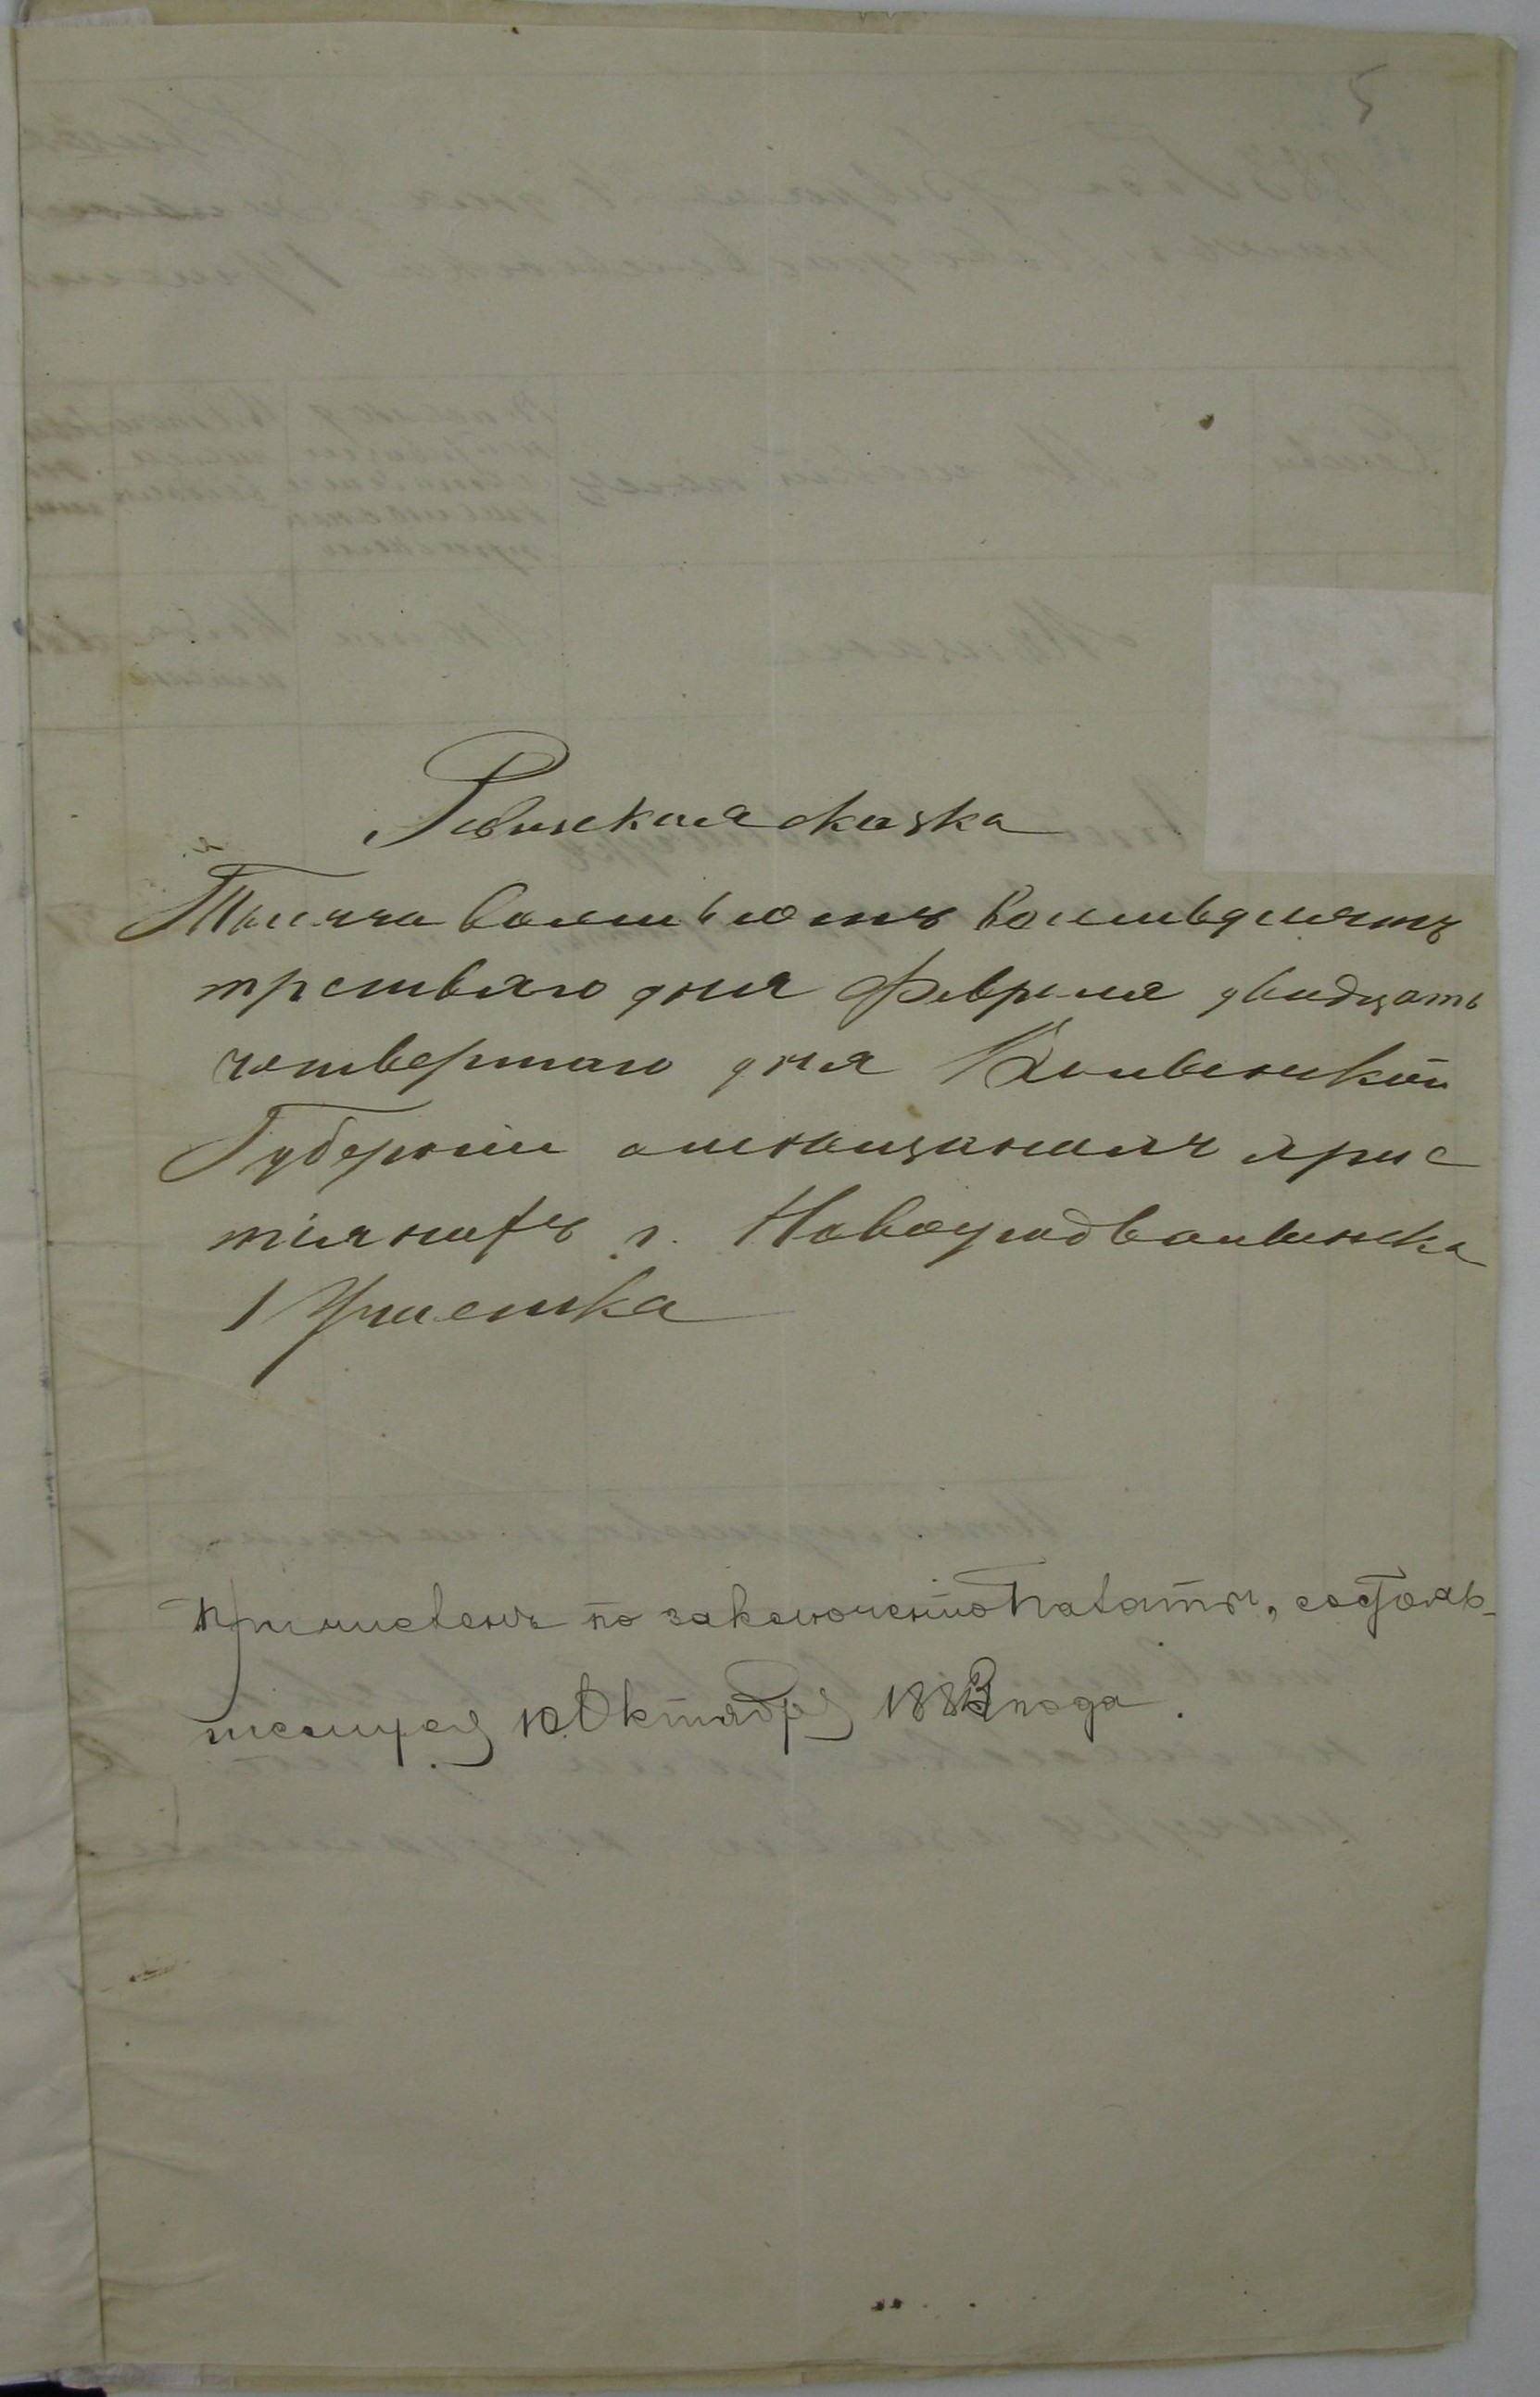 5
Ревизская сказка
Тысяча восемьсотъ восемьдесятъ
третьяго дня Февраля двадцать
четвертаго дня Волынской
Губерніи о мещанахъ хрис
тіянахъ г. Новоградволынска
1 Участка
Причисленъ по заключенію Палаты, состояв-
шемуся 10 Октября 1883 года.